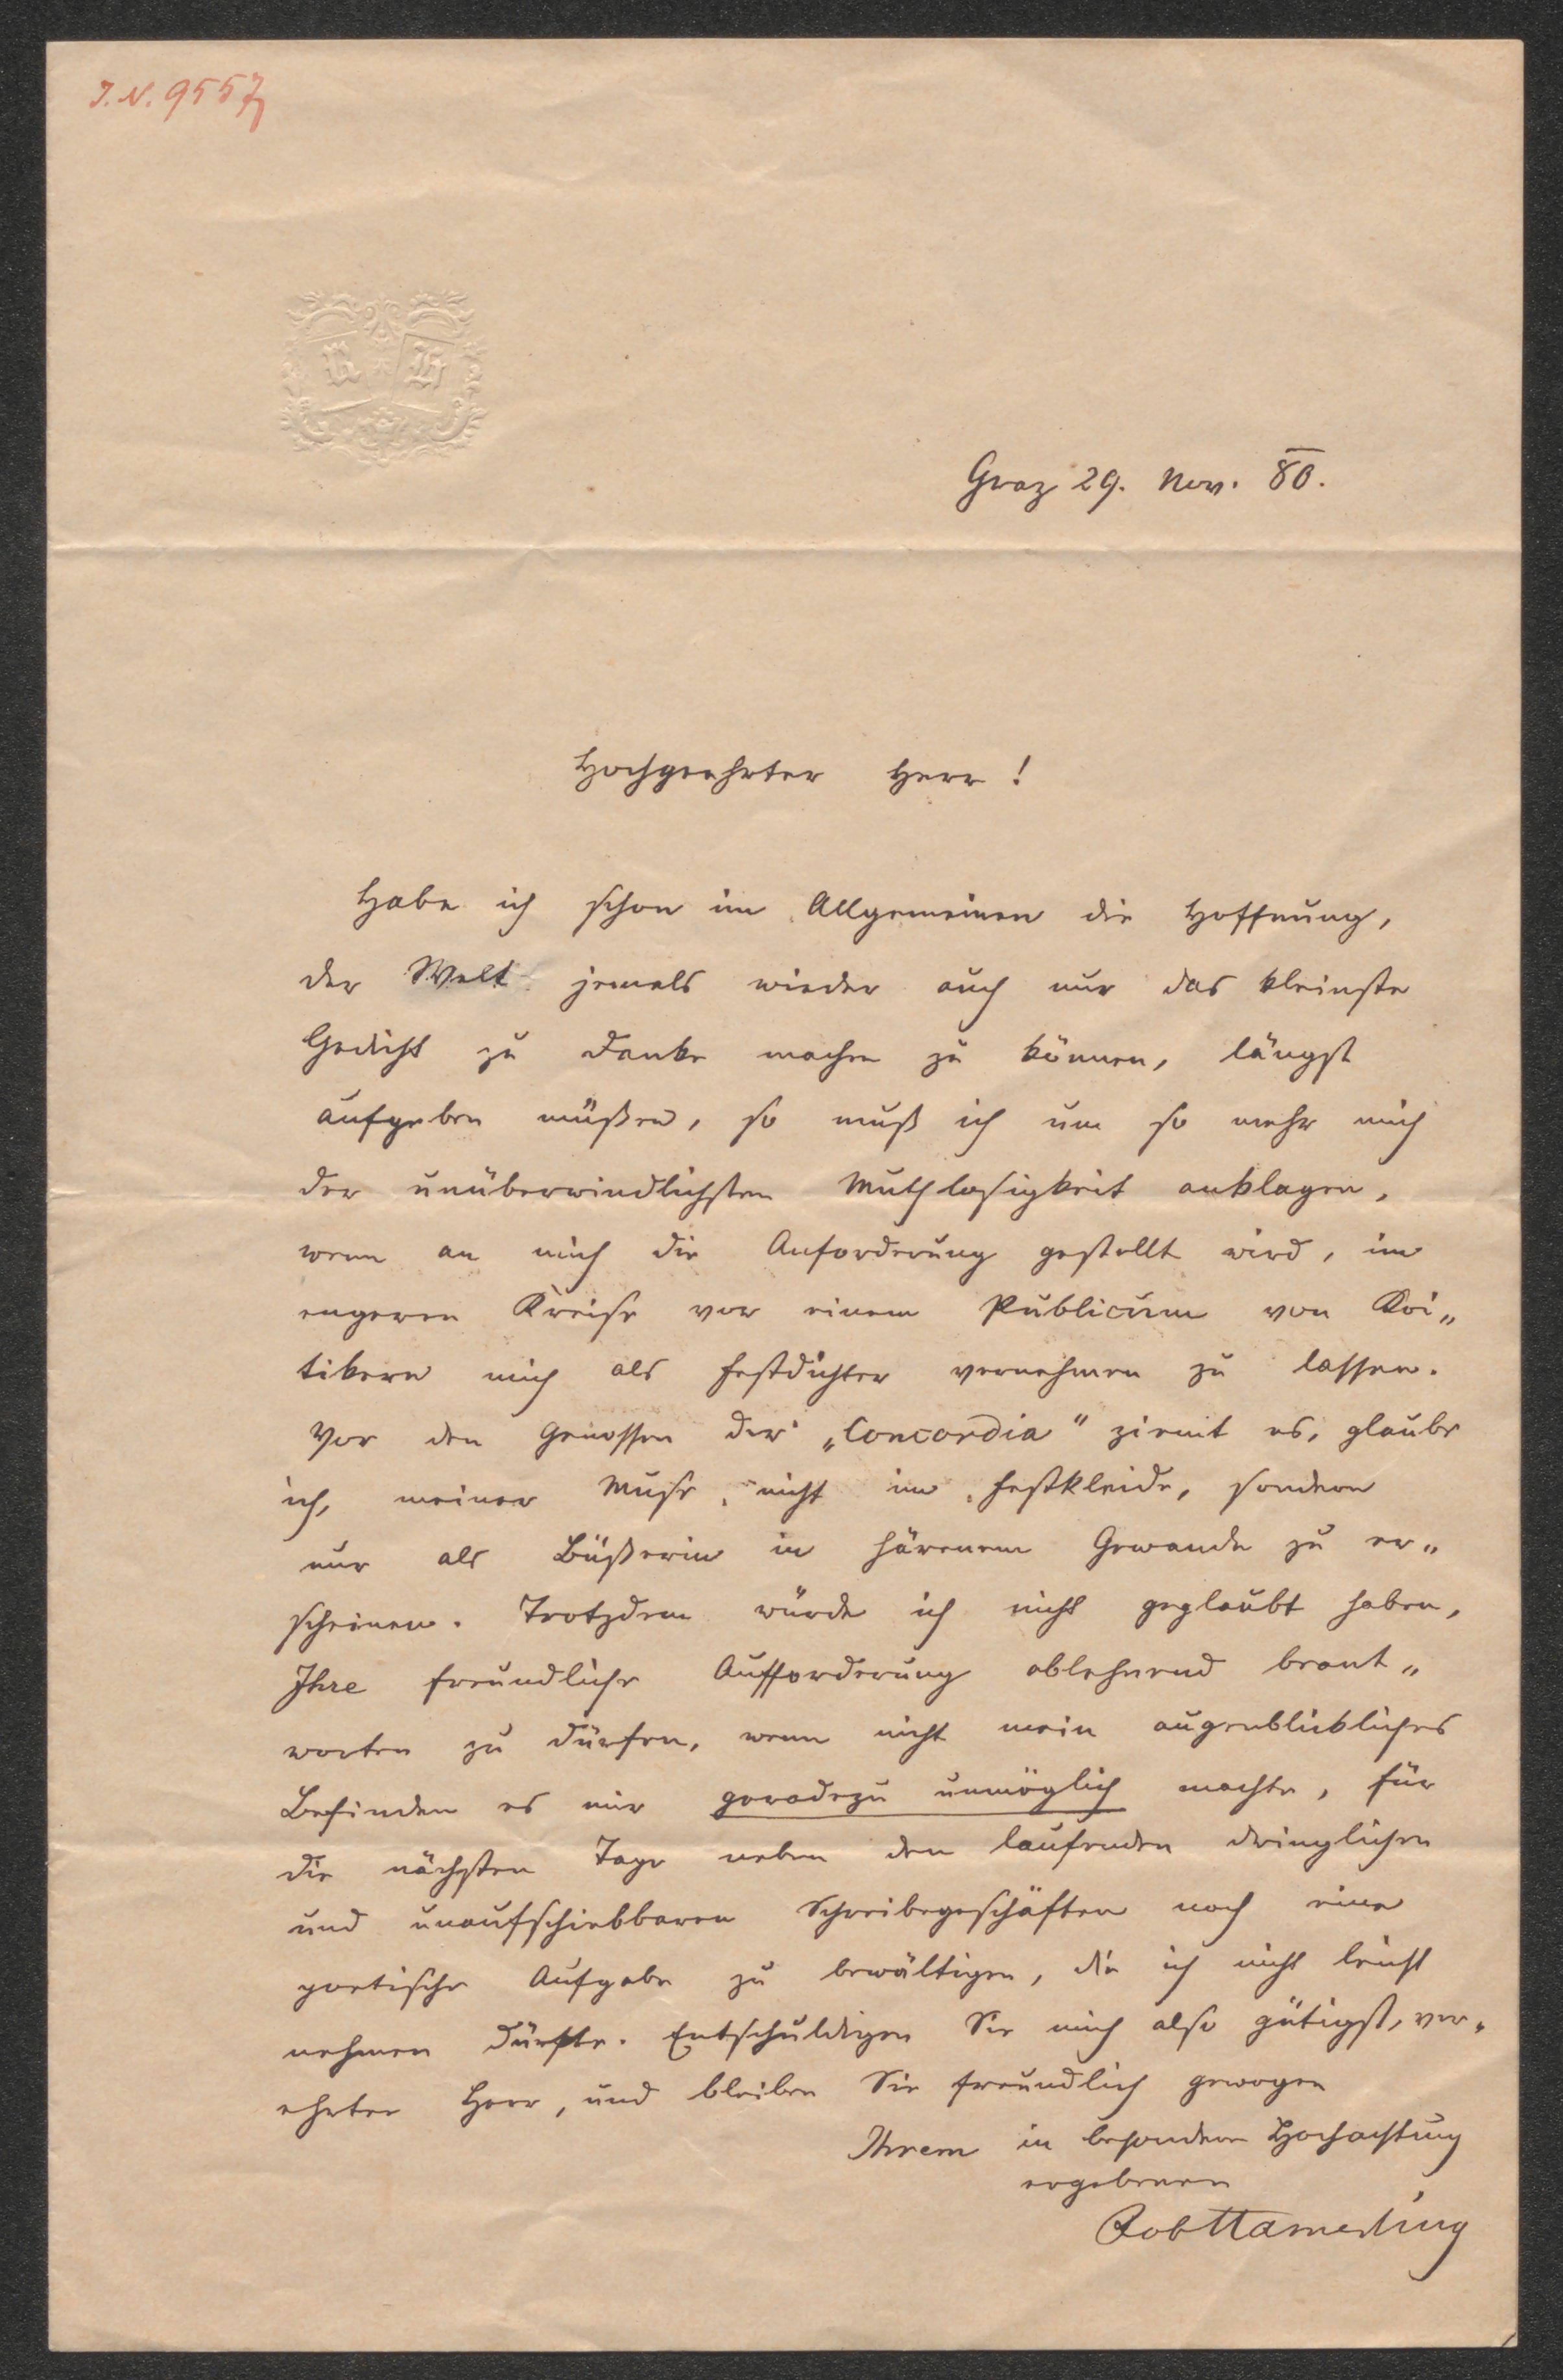 I. N. 9557
R H
Graz 29. Nov. 80.
Hochgeehrter Herr!
Habe ich schon im Allgemeinen die Hoffnung,
der Welt jemals wieder auch nur das kleinste
Gedicht zu Danke machen zu können, längst
aufgeben müßen, so muß ich um so mehr mich
der unüberwindlichsten Muthlosigkeit anklagen,
wenn an mich die Anforderung gestellt wird, im
engeren Kreise vor einem Publicum von Kri„
tikern mich als Festdichter vernehmen zu lassen.
Vor den Genossen der „Concordia" ziemt es, glaube
ich, meiner Muse, nicht im Festkleide, sondern
nur als Büßerin in härenem Gewande zu er„
scheinen. Trotzdem würde ich nicht geglaubt haben,
Ihre freundliche Aufforderung ablehnend beant„
worten zu dürfen, wenn nicht mein augenblickliches
Befinden es mir geradezu unmöglich machte, für
die nächsten Tage neben den laufenden dringlichen
und unaufschiebbaren Schreibegeschäften noch eine
poetische Aufgabe zu bewältigen, die ich nicht leicht
nehmen dürfte. Entschuldigen Sie mich also gütigst, ver„
ehrter Herr, und bleiben Sie freundlich gewogen
Ihrem in besonderer Hochachtung
ergebenen
Rob Hamerling